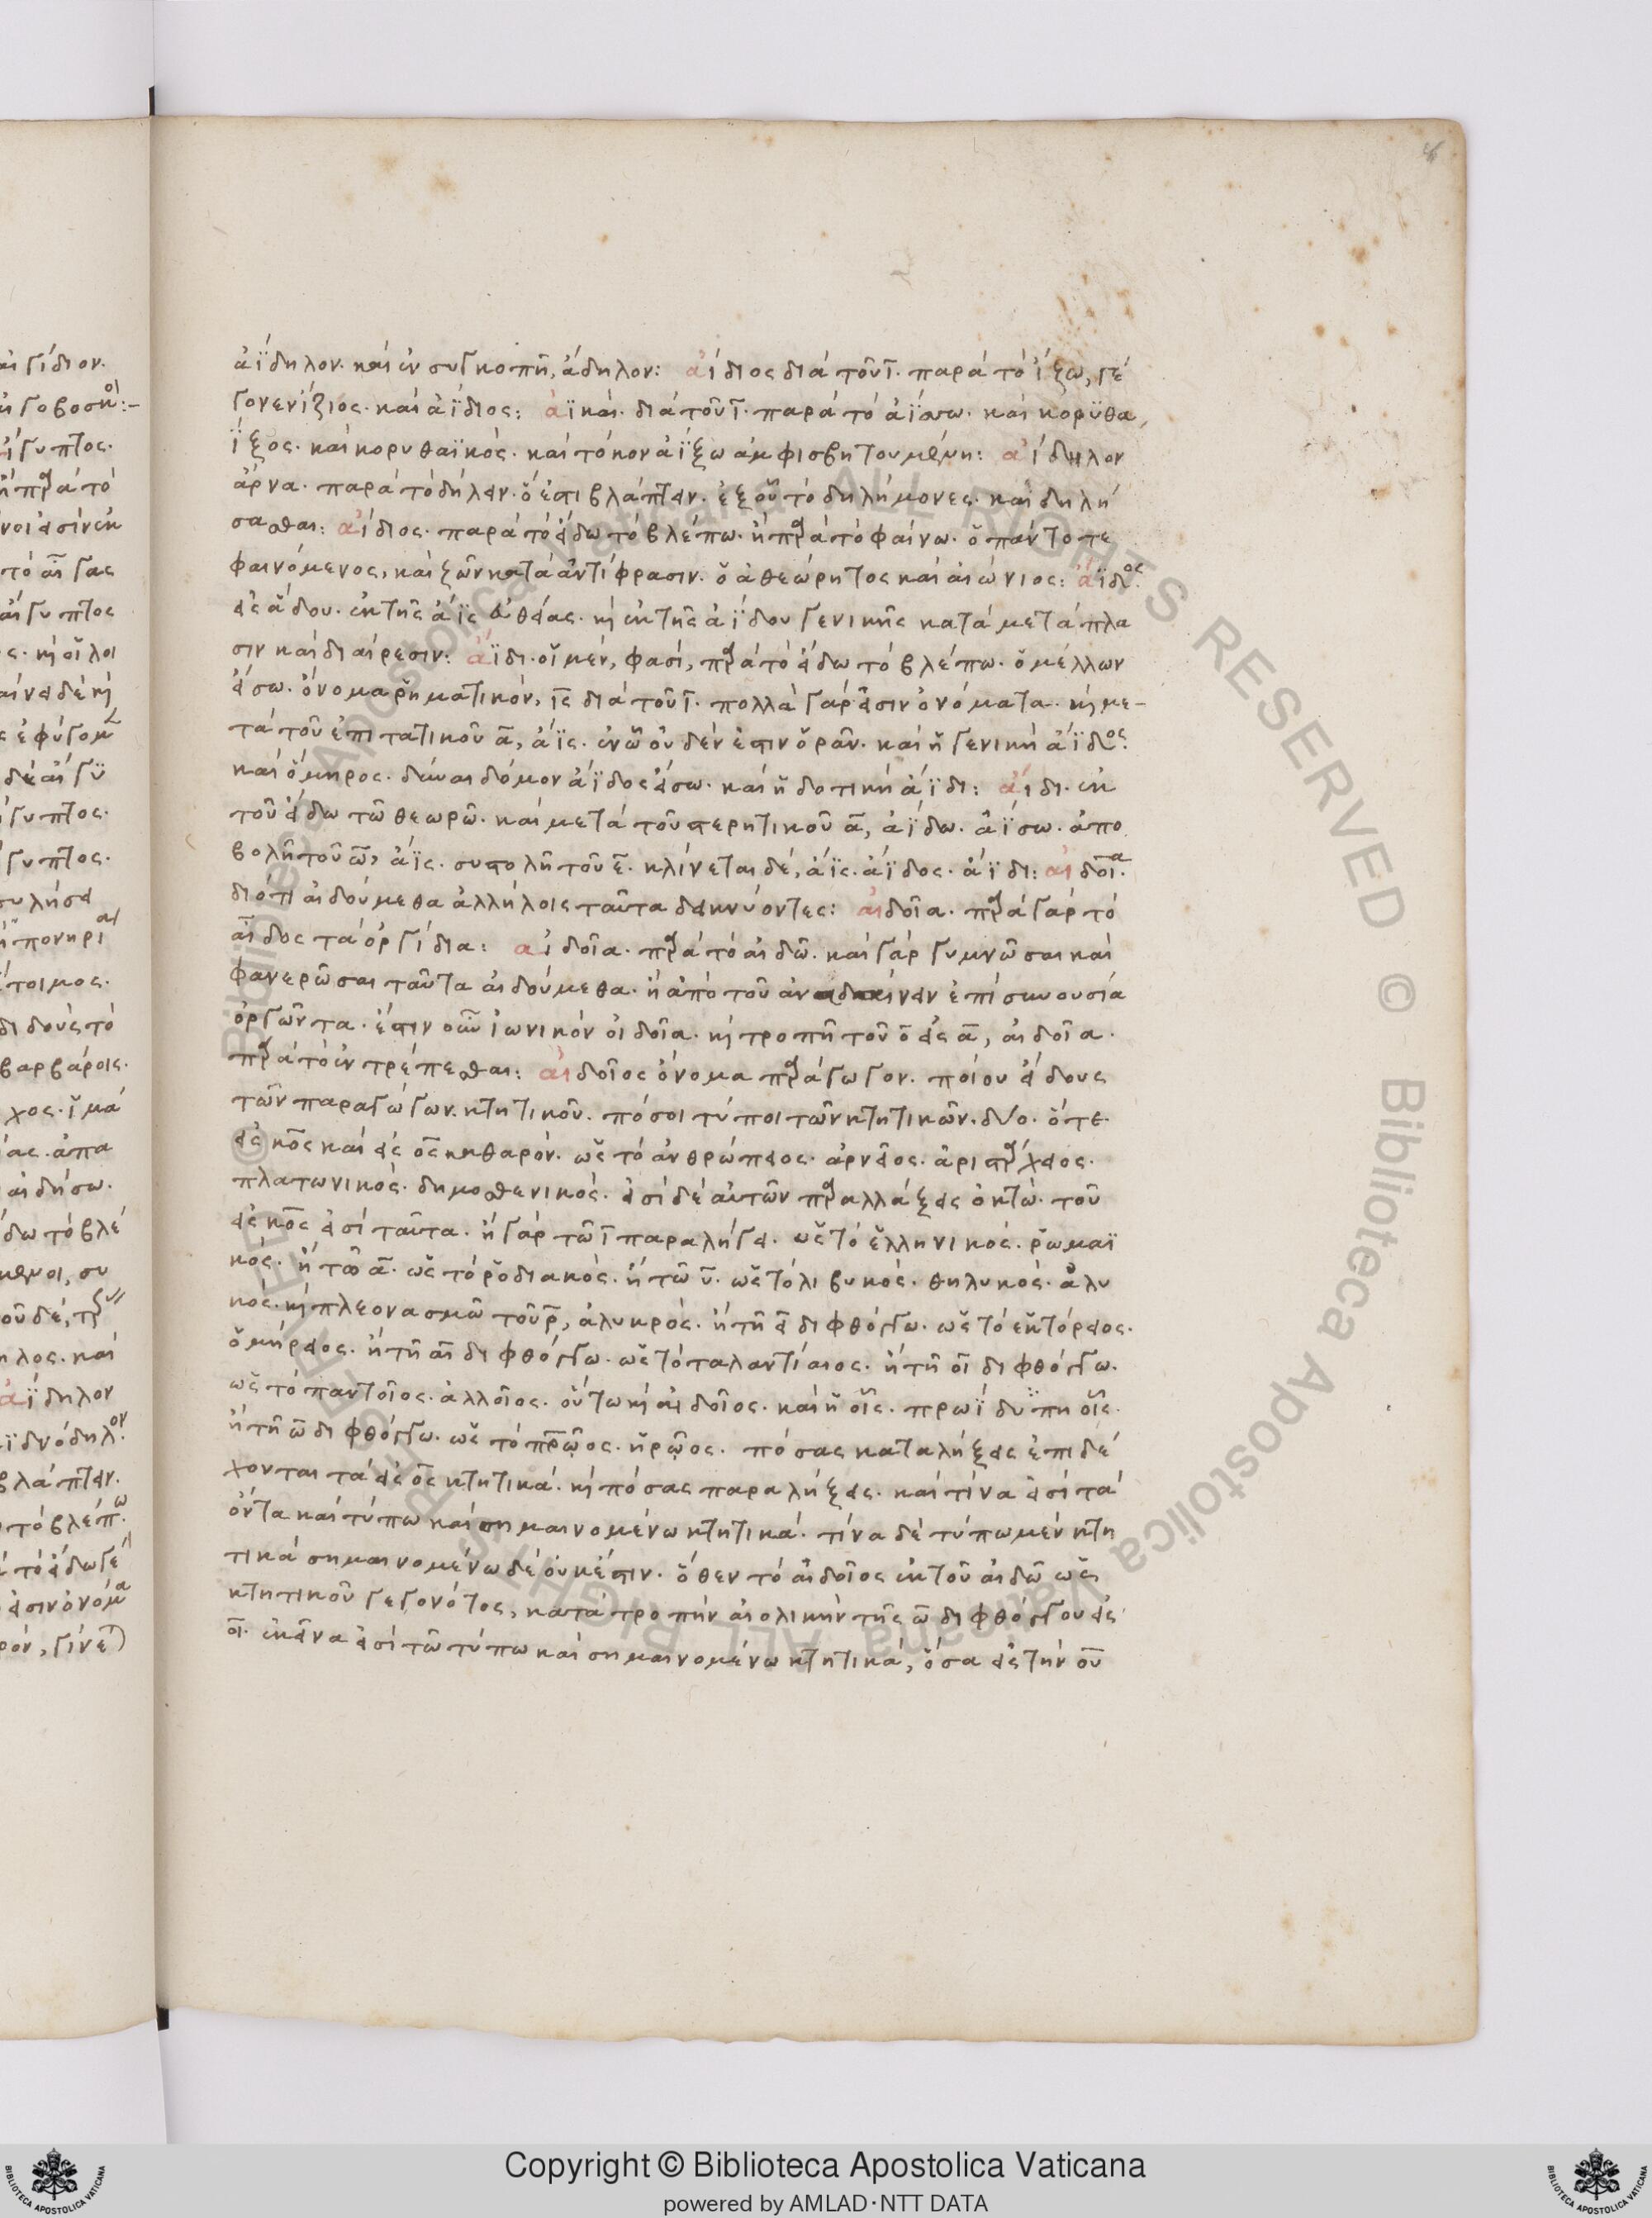 ἀΐδηλον. καὶ ἐν συγκοπῆ, ἄδηλον: ἀίδιος διὰ τοῦ ῑ. παρὰ τὸ ἵζω, γέ
γονεν ἵζιος. καὶ ἀΐδιος: ἀϊκαὶ. διὰ τοῦ ῑ. παρὰ τὸ ἀΐσσω. καὶ κορϋθα,
ΐξος. καὶ κορυθαϊκὸς. καὶ τὸ κοναΐξω ἀμφισβητουμένη: ἀίδηλον
ἄρνα. παρὰ τὸ δηλεῖν. ὅ ἐστι βλάπτειν. ἐξ οὗ τὸ δηλήμονες. καὶ δηλή
σασθαι: ἀίδιος. παρὰ τὸ εἴδω τὸ βλέπω. ἢ παρὰ τὸ φαίνω. ὁ πάντοτε
φαινόμενος, καὶ ζῶν κατὰ ἀντίφρασιν. ὁ ἀθεώρητος καὶ αἰώνιος: ἄϊδος.
εἰς ἅδου. ἐκ τῆς ἄϊς εὐθείας. κὴ ἐκ τῆς ἀΐδου γενικῆς κατὰ μετάπλα
σιν καὶ διαίρεσιν: ἄϊδι. οἱ μέν, φασί, παρὰ τὸ εἴδω τὸ βλέπω. ὁ μέλλων
εἴσω. ὄνομα ῥηματικόν, ἴς διὰ τοῦ ῑ. πολλὰ γάρ εἰσιν ὀνόματα. κὴ με-
τὰ τοῦ ἐπιτατικοῦ ᾱ, ἄϊς. ἐν ᾧ οὐδέν ἐστιν ὁρᾶν. καὶ ἡ γενικὴ ἄϊδος.
καὶ ὅμηρος. δῦναι δόμον ἄϊδος εἴσω. καὶ ἡ δοτικὴ ἄϊδι: ἄιδι. ἐκ
τοῦ εἴδω τῶ θεωρῶ. καὶ μετὰ τοῦ στερητικοῦ ᾱ, ἀΐδω. ἀΐσω. ἀπο
βολῆ τοῦ ω̄, ἄϊς. συστολῆ τοῦ ε̄. κλίνεται δέ, ἄϊς. ἄϊδος. ἄϊδι: αἰδοῖα.
διότι αἰδούμεθα ἀλλήλοις ταῦτα δεικνύοντες: αἰδοῖα. παρὰ γὰρ τὸ
αἶδος τὰ ὀργίδια: αἰδοῖα. παρὰ τὸ αἰδῶ. καὶ γὰρ γυμνῶσαι καὶ
φανερῶσαι ταῦτα αἰδούμεθα. ἢ ἀπὸ τοῦ ἀνοιδαίνειν ἐπὶ συνουσία
ὀργῶντα. ἔστιν οὖν ἰωνικὸν οἰδοῖα. κὴ τροπῆ τοῦ ο̄ εἰς ᾱ, αἰδοῖα.
παρὰ τὸ ἐντρέπεσθαι: αἰδοῖος ὄνομα παράγωγον. ποίου εἴδους
τῶν παραγώγων. κτητικοῦ. πόσοι τύποι τῶν κτητικῶν. δύο. ὅτε
εἰς κο̄ς καὶ εἰς ο̄ς καθαρόν. ὡς τὸ ἀνθρώπειος. ἀρνεῖος. ἀριστάρχειος.
πλατωνικός. δημοσθενικός. εἰσὶ δὲ αὐτῶν παραλλάξεις ὀκτώ. τοῦ
εἰς κο̄ς εἰσὶ ταῦτα. ἢ γὰρ τῶ ῑ παραλήγει. ὡς τὸ ἑλληνικός. ῥωμαϊ
κός. ἢ τῶ ᾱ. ὡς τὸ ῥοδιακός. ἢ τῶ ῡ. ὡς τὸ λιβυκός. θηλυκός. ἁλυ
κός. κὴ πλεονασμῶ τοῦ ρ̄, ἁλυκρός. ἢ τῆ ει διφθόγγω. ὡς τὸ ἑκτόρειος.
ὁμήρειος. ἢ τῆ αῑ διφθόγγω. ὡς τὸ ταλαντίαιος. ἢ τῆ οῑ διφθόγγω.
ὡς τὸ παντοῖος. ἀλλοῖος. οὕτω κὴ αἰδοῖος. καὶ ἡ οῑς. πρωῒ δυπηοῖς.
ἢ τῆ ω̄ διφθόγγω. ὡς τὸ πρῷος. ἡρῷος. πόσας καταλήξεις ἐπιδέ
χονται τὰ εἰς ο̄ς κτητικά. κὴ πόσας παραλήξεις. καὶ τίνα εἰσὶ τὰ
ὄντα καὶ τύπω καὶ σημαινομένω κτητικά. τίνα δὲ τύπω μὲν κτη
τικὰ σημαινομένω δὲ οὐκέστιν. ὅθεν τὸ αἰδοῖος ἐκ τοῦ αἰδῶ ὡς
κτητικοῦ γεγονότος, κατὰ τροπὴν αἰολικὴν τῆς ω̄ διφθόγγου εἰς
οῑ. ἐκεῖνα εἰσὶ τῶ τύπω καὶ σημαινομένω κτητικά, ὅσα εἰς τὴν οῡ
Copyright © Biblioteca Apostolica Vaticana
powered by AMLAD･NTT DATA